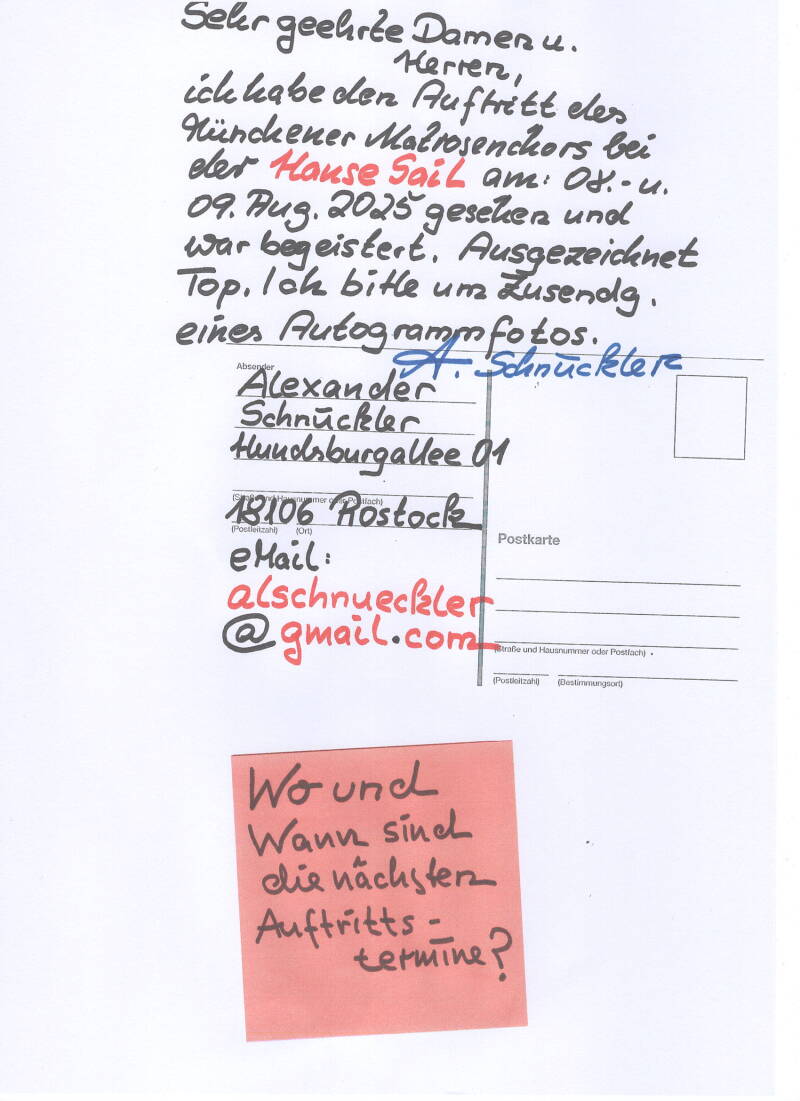 Sehr geehrte Damen u.
Herren,
ich habe den Auftritt des
Münchener Matrosenchors bei
der Hanse Sail am: 08.- u.
09. Aug. 2025 gesehen und
war begeistert. Ausgezeichnet
Top. Ich bitte um Zusendg.
eines Autogrammfotos.
A. Schnückler
Absender
Alexander
Schnückler
Hundsburgallee 01
(Straße und Hausnummer oder Postfach)
18106 Rostock
(Postleitzahl) (Ort)
eMail:
alschnueckler
@gmail.com
Postkarte
(Straße und Hausnummer oder Postfach)
(Postleitzahl) (Bestimmungsort)
Wo und
Wann sind
die nächsten
Auftritts-
termine?